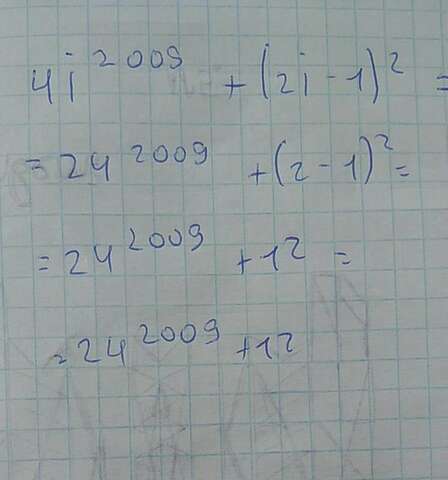 4i^2009 + (2i - 1)^2 =
= 24^2009 + (2 - 1)^2 =
= 24^2009 + 1^2 =
= 24^2009 + 1^2